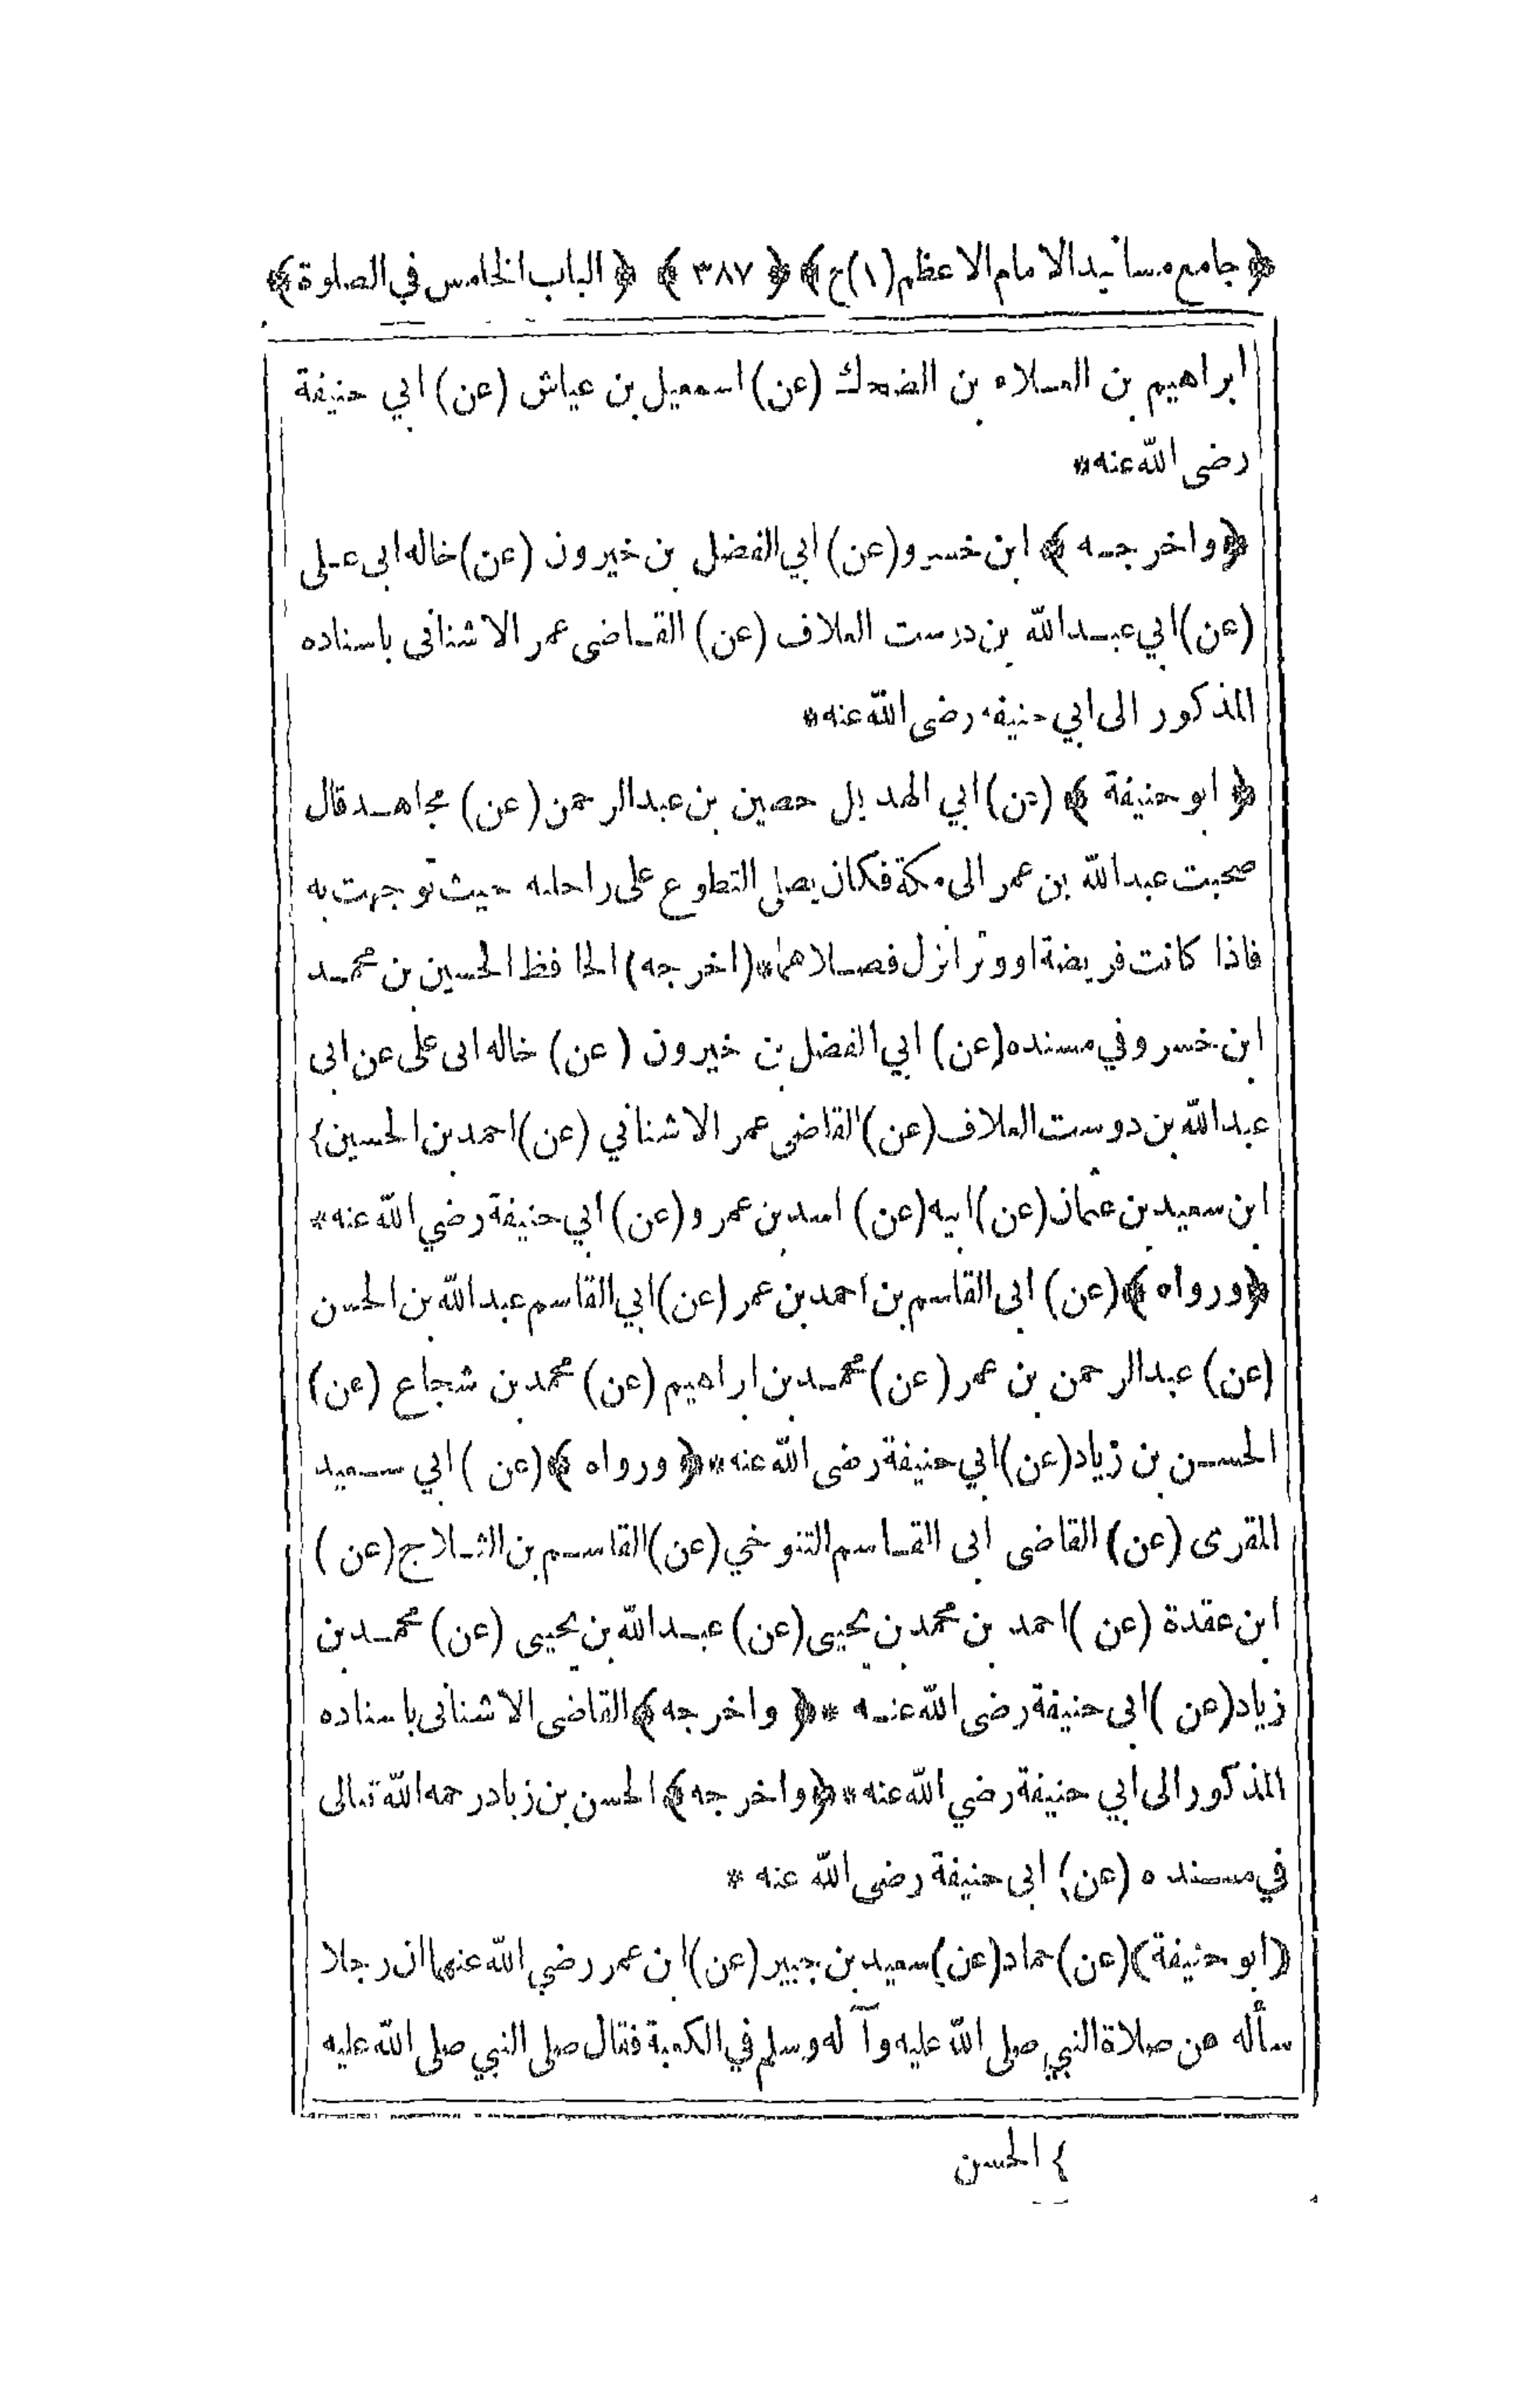 ﴿جامع مسانيد الامام الاعظم (١) ج﴾ ﴿٣٨٧﴾ ﴿الباب الخامس في الصلوة﴾
ابراهيم بن العلاء بن الضحاك (عن) اسمعيل بن عياش (عن) ابي حنيفة
رضى الله عنه*
﴿واخرجه﴾ ابن خسرو (عن) ابي الفضل بن خيرون (عن) خاله ابى على
(عن) ابي عبد الله بن درست العلاف (عن) القاضى عمر الاشنانى باسناده
المذكور الى ابي حنيفه رضى الله عنه*
﴿ابو حنيفة﴾ (عن) ابي الهذيل حصين بن عبد الرحمن (عن) مجاهد قال
صحبت عبد الله بن عمر الى مكة فكان يصلى التطوع على راحلته حيث توجهت به
فاذا كانت فريضة او وتر انزل فصلاهما* (اخرجه) الحافظ الحسين بن محمد
ابن خسرو في مسنده (عن) ابي الفضل بن خيرون (عن) خاله ابى على عن ابى
عبد الله بن دوست العلاف (عن) القاضى عمر الاشناني (عن) احمد بن الحسين}
ابن سعيد بن عثمان (عن) ابيه (عن) اسد بن عمرو (عن) ابي حنيفة رضي الله عنه*
﴿ورواه﴾ (عن) ابى القاسم بن احمد بن عمر (عن) ابي القاسم عبد الله بن الحسن
(عن) عبد الرحمن بن عمر (عن) محمد بن ابراهيم (عن) محمد بن شجاع (عن)
الحسن بن زياد (عن) ابي حنيفة رضى الله عنه* ﴿ورواه﴾ (عن) ابي سعيد
المقرى (عن) القاضى ابى القاسم التنوخي (عن) القاسم بن الثلاج (عن)
ابن عقدة (عن) احمد بن محمد بن يحيى (عن) عبد الله بن يحيى (عن) محمد بن
زياد (عن) ابى حنيفة رضى الله عنه* ﴿واخرجه﴾ القاضى الاشنانى باسناده
المذكور الى ابي حنيفة رضي الله عنه* ﴿واخرجه﴾ الحسن بن زياد رحمه الله تعالى
في مسنده (عن) ابى حنيفة رضى الله عنه*
(ابو حنيفة) (عن) حماد (عن) سعيد بن جبير (عن) ابن عمر رضي الله عنهما ان رجلا
سأله عن صلاة النبي صلى الله عليه وآله وسلم في الكعبة فقال صلى النبي صلى الله عليه
} الحسن